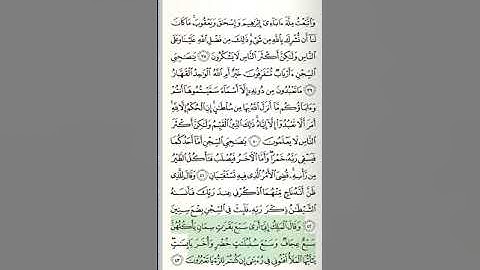 وَٱتَّبَعْتُ مِلَّةَ ءَابَآءِىٓ إِبْرَٰهِيمَ وَإِسْحَٰقَ وَيَعْقُوبَ مَا كَانَ
لَنَآ أَن نُّشْرِكَ بِٱللَّهِ مِن شَىْءٍ ذَٰلِكَ مِن فَضْلِ ٱللَّهِ عَلَيْنَا وَعَلَى
ٱلنَّاسِ وَلَٰكِنَّ أَكْثَرَ ٱلنَّاسِ لَا يَشْكُرُونَ ٣٨ يَٰصَٰحِبَىِ
ٱلسِّجْنِ ءَأَرْبَابٌ مُّتَفَرِّقُونَ خَيْرٌ أَمِ ٱللَّهُ ٱلْوَٰحِدُ ٱلْقَهَّارُ
٣٩ مَا تَعْبُدُونَ مِن دُونِهِۦٓ إِلَّآ أَسْمَآءً سَمَّيْتُمُوهَآ أَنتُمْ
وَءَابَآؤُكُم مَّآ أَنزَلَ ٱللَّهُ بِهَا مِن سُلْطَٰنٍ إِنِ ٱلْحُكْمُ إِلَّا لِلَّهِ
أَمَرَ أَلَّا تَعْبُدُوٓا۟ إِلَّآ إِيَّاهُ ذَٰلِكَ ٱلدِّينُ ٱلْقَيِّمُ وَلَٰكِنَّ أَكْثَرَ
ٱلنَّاسِ لَا يَعْلَمُونَ ٤٠ يَٰصَٰحِبَىِ ٱلسِّجْنِ أَمَّآ أَحَدُكُمَا
فَيَسْقِى رَبَّهُۥ خَمْرًا وَأَمَّا ٱلْءَاخَرُ فَيُصْلَبُ فَتَأْكُلُ ٱلطَّيْرُ
مِن رَّأْسِهِۦ قُضِىَ ٱلْأَمْرُ ٱلَّذِى فِيهِ تَسْتَفْتِيَانِ ٤١ وَقَالَ لِلَّذِى
ظَنَّ أَنَّهُۥ نَاجٍ مِّنْهُمَا ٱذْكُرْنِى عِندَ رَبِّكَ فَأَنسَىٰهُ
ٱلشَّيْطَٰنُ ذِكْرَ رَبِّهِۦ فَلَبِثَ فِى ٱلسِّجْنِ بِضْعَ سِنِينَ
٤٢ وَقَالَ ٱلْمَلِكُ إِنِّىٓ أَرَىٰ سَبْعَ بَقَرَٰتٍ سِمَانٍ يَأْكُلُهُنَّ
سَبْعٌ عِجَافٌ وَسَبْعَ سُنۢبُلَٰتٍ خُضْرٍ وَأُخَرَ يَابِسَٰتٍ
يَٰٓأَيُّهَا ٱلْمَلَأُ أَفْتُونِى فِى رُءْيَٰىَ إِن كُنتُمْ لِلرُّءْيَا تَعْبُرُونَ ٤٣